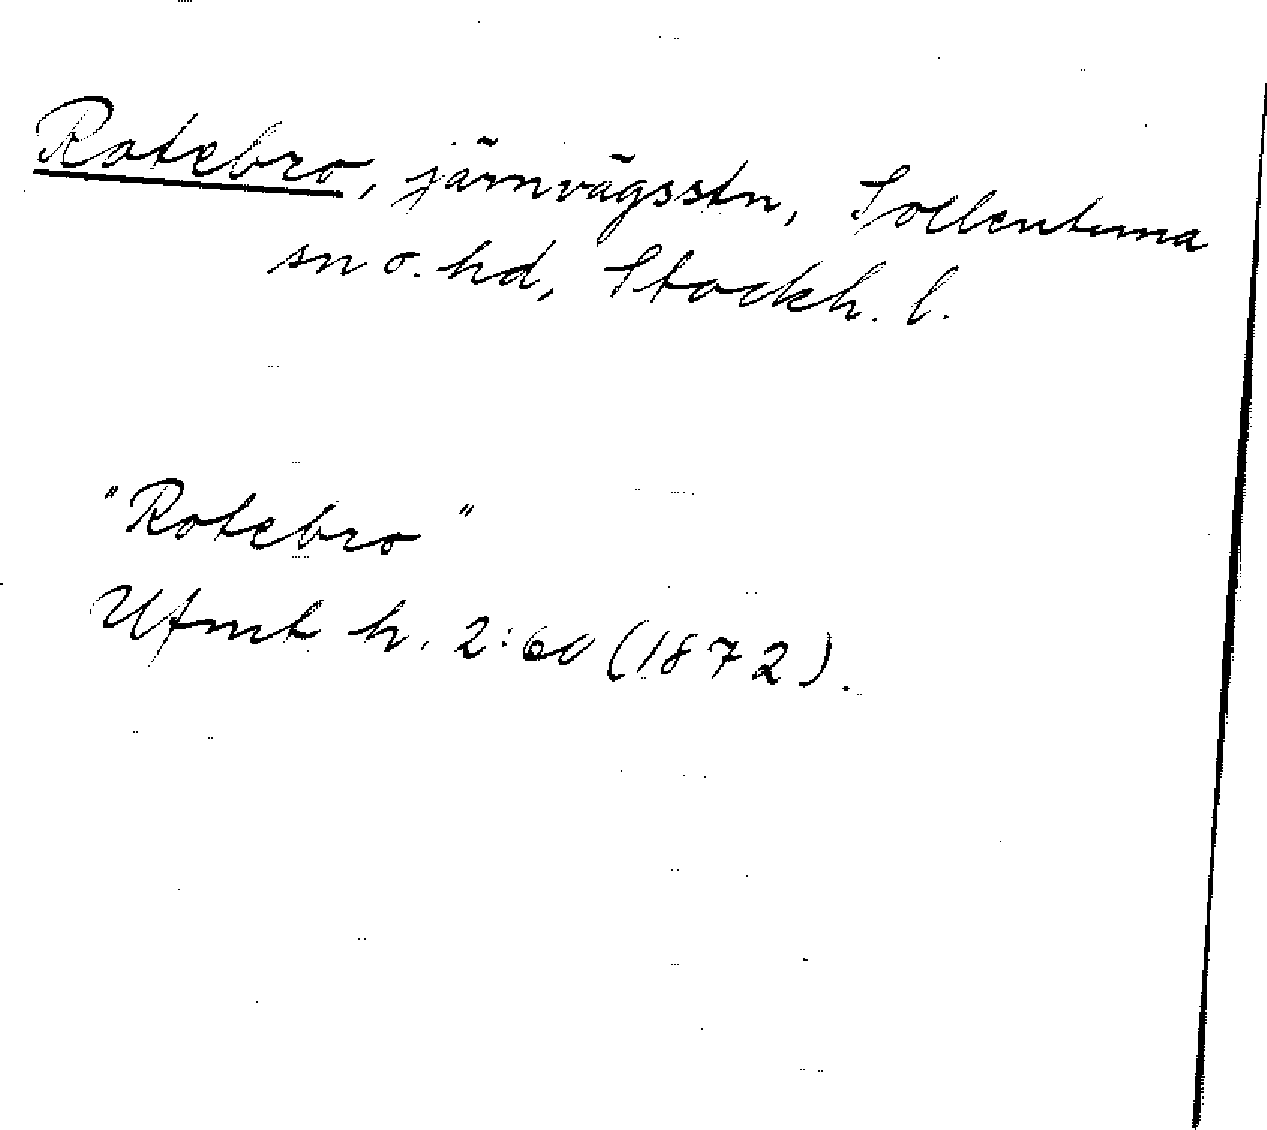 Rotebro, järnvägsstn, Sollentuna
sn o. hd, Stockh. l.
"Rotebro"
Ufmt h. 2:60 (1872).